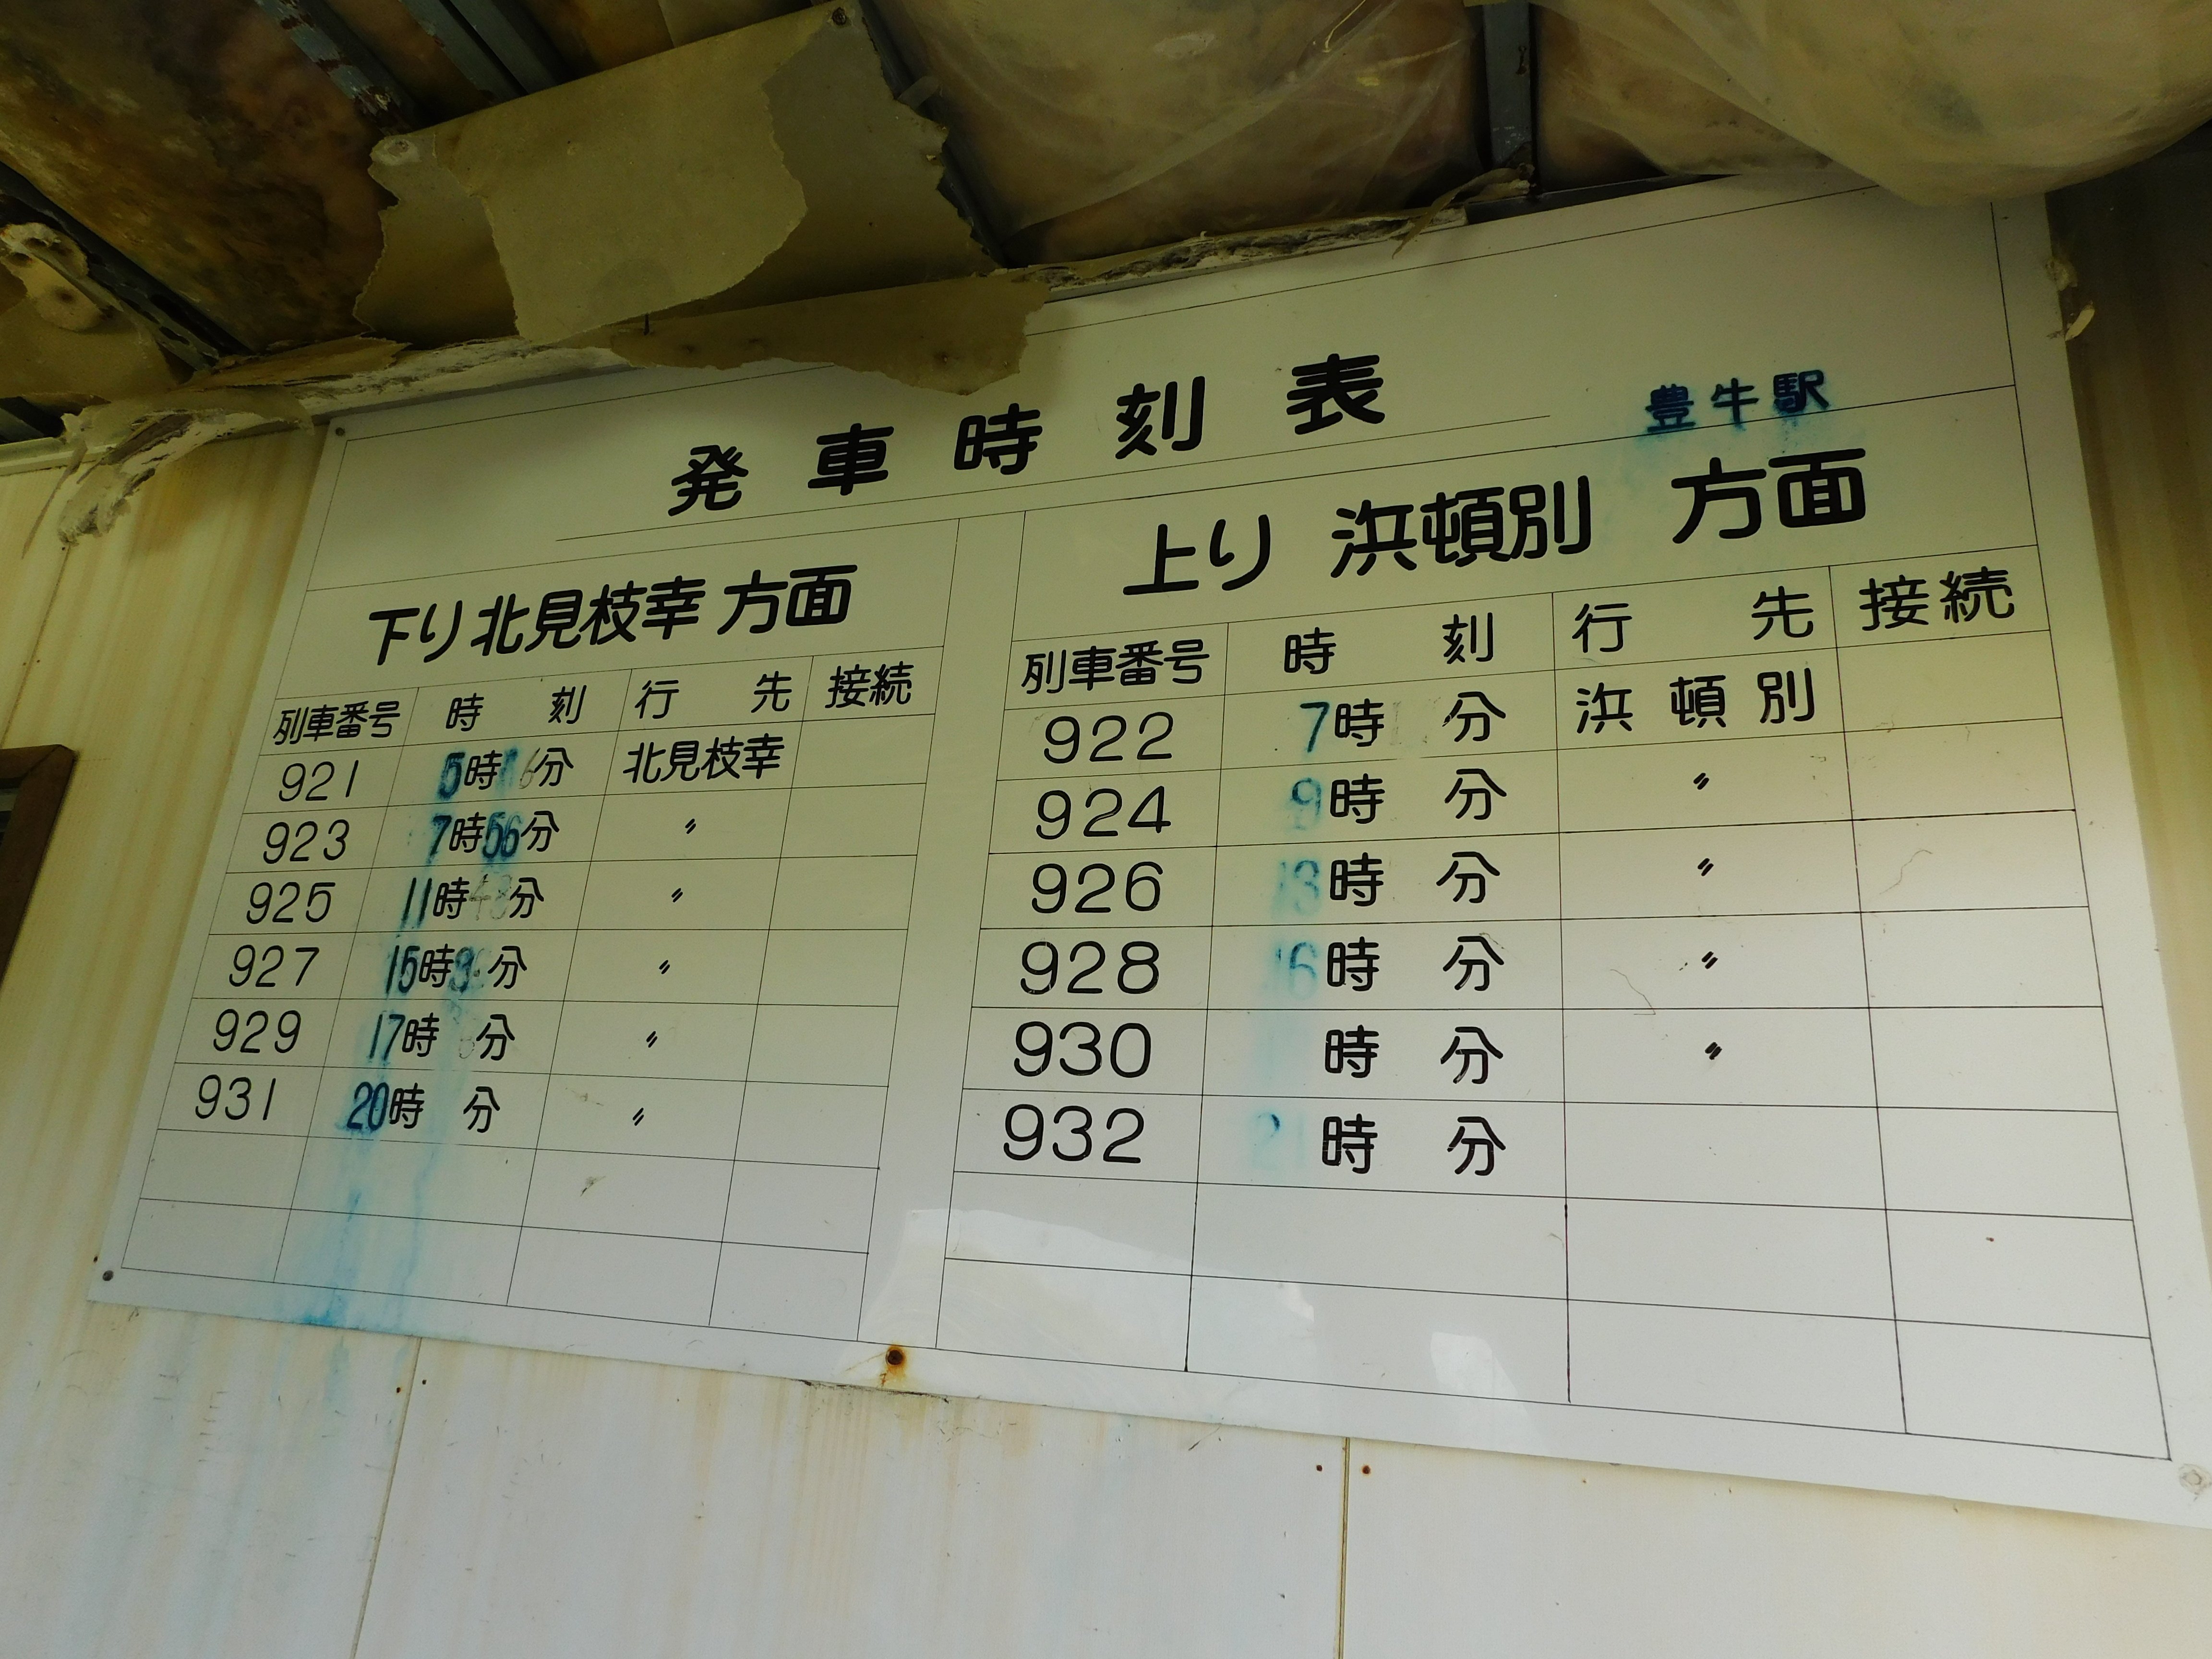 発車時刻表
豊牛駅
下り 北見枝幸 方面
列車番号 時刻 行先 接続
921 5時16分 北見枝幸
923 7時56分 〃
925 11時43分 〃
927 15時3分 〃
929 17時 分 〃
931 20時 分 〃
上り 浜頓別 方面
列車番号 時刻 行先 接続
922 7時 分 浜頓別
924 9時 分 〃
926 13時 分 〃
928 16時 分 〃
930 時 分 〃
932 21時 分